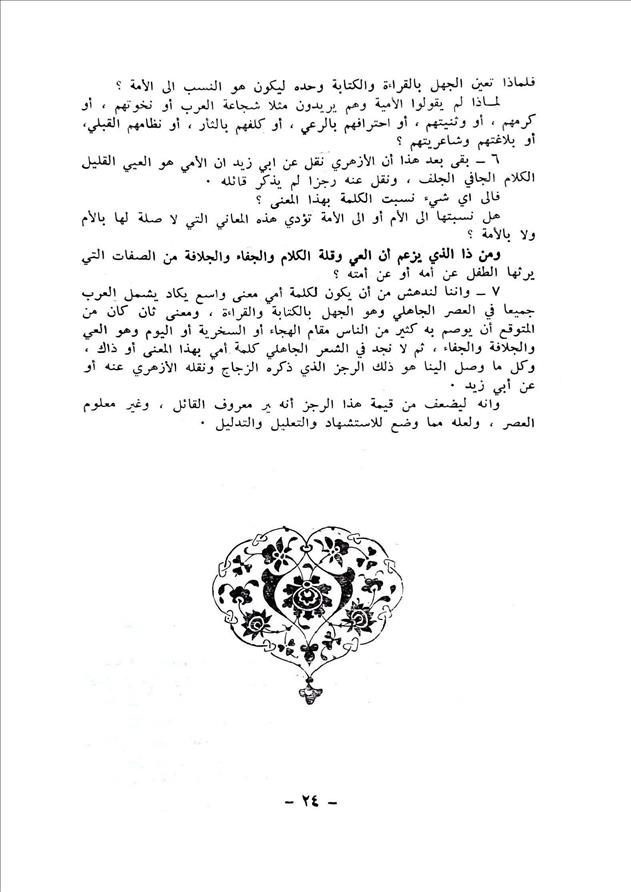 فلماذا تعين الجهل بالقراءة والكتابة وحده ليكون هو النسب الى الأمة ؟
لماذا لم يقولوا الأمية وهم يريدون مثلا شجاعة العرب أو نخوتهم ، أو
كرمهم ، أو وثنيتهم ، أو احترافهم بالرعي ، أو كلفهم بالثار ، أو نظامهم القبلي،
أو بلاغتهم وشاعريتهم ؟
٦ ــ بقى بعد هذا أن الأزهري نقل عن ابي زيد ان الأمي هو العيي القليل
الكلام الجافي الجلف ، ونقل عنه رجزا لم يذكر قائله ٠
فالى اي شيء نسبت الكلمة بهذا المعنى ؟
هل نسبتها الى الأم أو الى الأمة تؤدي هذه المعاني التي لا صلة لها بالأم
ولا بالأمة ؟
ومن ذا الذي يزعم أن العي وقلة الكلام والجفاء والجلافة من الصفات التي
يرثها الطفل عن أمه أو عن أمته ؟
٧ ــ واننا لندهش من أن يكون لكلمة أمي معنى واسع يكاد يشمل العرب
جميعا في العصر الجاهلي وهو الجهل بالكتابة والقراءة ، ومعنى ثان كان من
المتوقع أن يوصم به كثير من الناس مقام الهجاء أو السخرية أو اليوم وهو العي
والجلافة والجفاء ، ثم لا نجد في الشعر الجاهلي كلمة أمي بهذا المعنى أو ذاك ،
وكل ما وصل الينا هو ذلك الرجز الذي ذكره الزجاج ونقله الأزهري عنه أو
عن أبي زيد ٠
وانه ليضعف من قيمة هذا الرجز أنه ير معروف القائل ، وغير معلوم
العصر ، ولعله مما وضع للاستشهاد والتعليل والتدليل ٠
– ٢٤ –